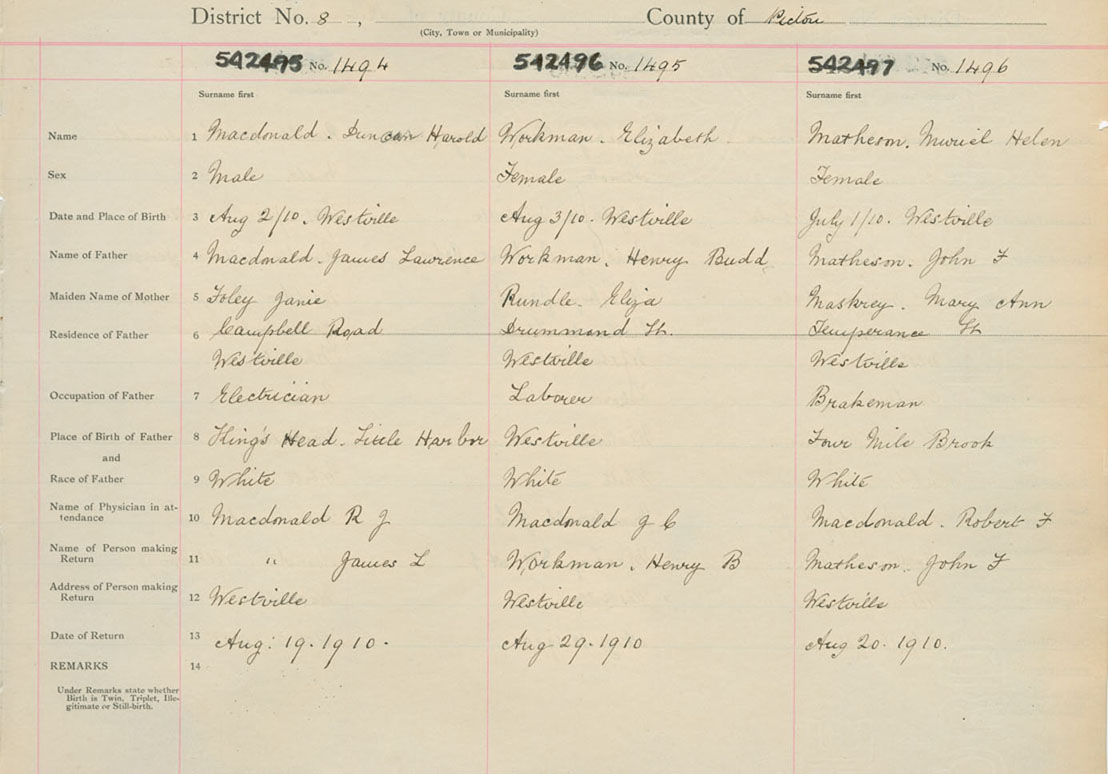 District No. 8 , County of Pictou
(City, Town or Municipality)
542495 No. 1494 542496 No. 1495 542497 No. 1496
Surname first Surname first Surname first
Name 1 Macdonald. Duncan Harold Workman. Elizabeth Matheson. Muriel Helen
Sex 2 Male Female Female
Date and Place of Birth 3 Aug 2/10. Westville Aug 3/10. Westville July 1/10. Westville
Name of Father 4 Macdonald. James Lawrence Workman. Henry Budd Matheson. John F
Maiden Name of Mother 5 Foley Janie Rundle. Eliza Maskrey. Mary Ann
Residence of Father 6 Campbell Road Drummond St. Temperance St
Westville Westville Westville
Occupation of Father 7 Electrician Laborer Brakeman
Place of Birth of Father 8 King's Head. Little Harbor Westville Four Mile Brook
and
Race of Father 9 White White White
Name of Physician in at-
tendance 10 Macdonald R J Macdonald J C Macdonald. Robert F
Name of Person making
Return 11 " James L Workman. Henry B Matheson. John F
Address of Person making
Return 12 Westville Westville Westville
Date of Return 13 Aug. 19. 1910. Aug 29. 1910 Aug 20. 1910.
REMARKS 14
Under Remarks state whether
Birth is Twin, Triplet, Ille-
gitimate or Still-birth.